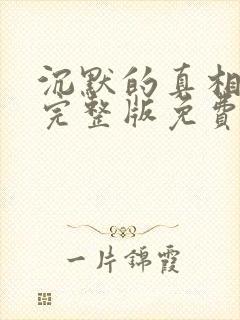 沉默的真相
完整版免费
一片锦霞